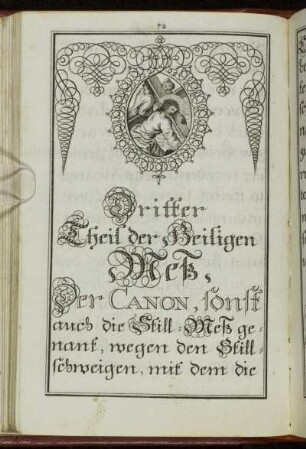 72
Dritter
Theil der Heiligen
Meß,
Der CANON, sonst
auch die Still-Meß ge-
nant, wegen den Still-
schweigen, mit dem die